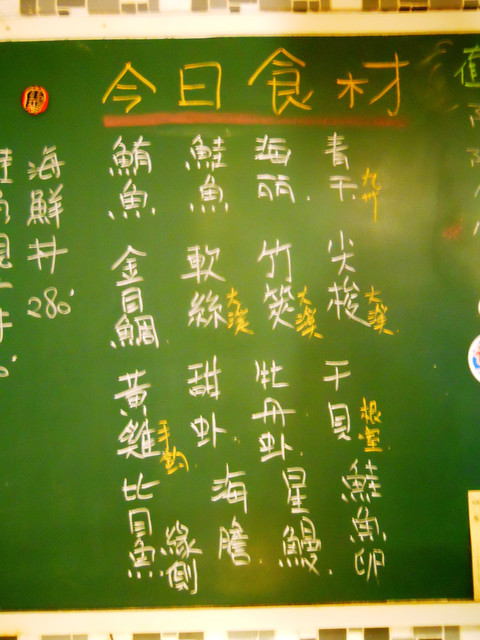 今日食材
青干 九州
海丽
鮭魚
鮪魚
尖梭 大溪
竹筴 大溪
軟絲 大溪
金目鯛
干貝 根室
牡丹虾
甜虾
黃雞 手釣
鮭魚卵
星鰻
海膽
比目魚 緣側
海鮮丼 280